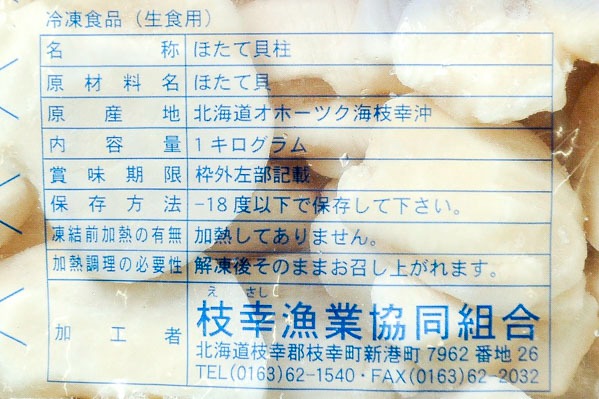 冷凍食品（生食用）
名称 ほたて貝柱
原材料名 ほたて貝
原産地 北海道オホーツク海枝幸沖
内容量 1キログラム
賞味期限 枠外左部記載
保存方法 -18度以下で保存して下さい。
凍結前加熱の有無 加熱してありません。
加熱調理の必要性 解凍後そのままお召し上がれます。
えさし
加工者 枝幸漁業協同組合
北海道枝幸郡枝幸町新港町7962番地26
TEL(0163)62-1540・FAX(0163)62-2032